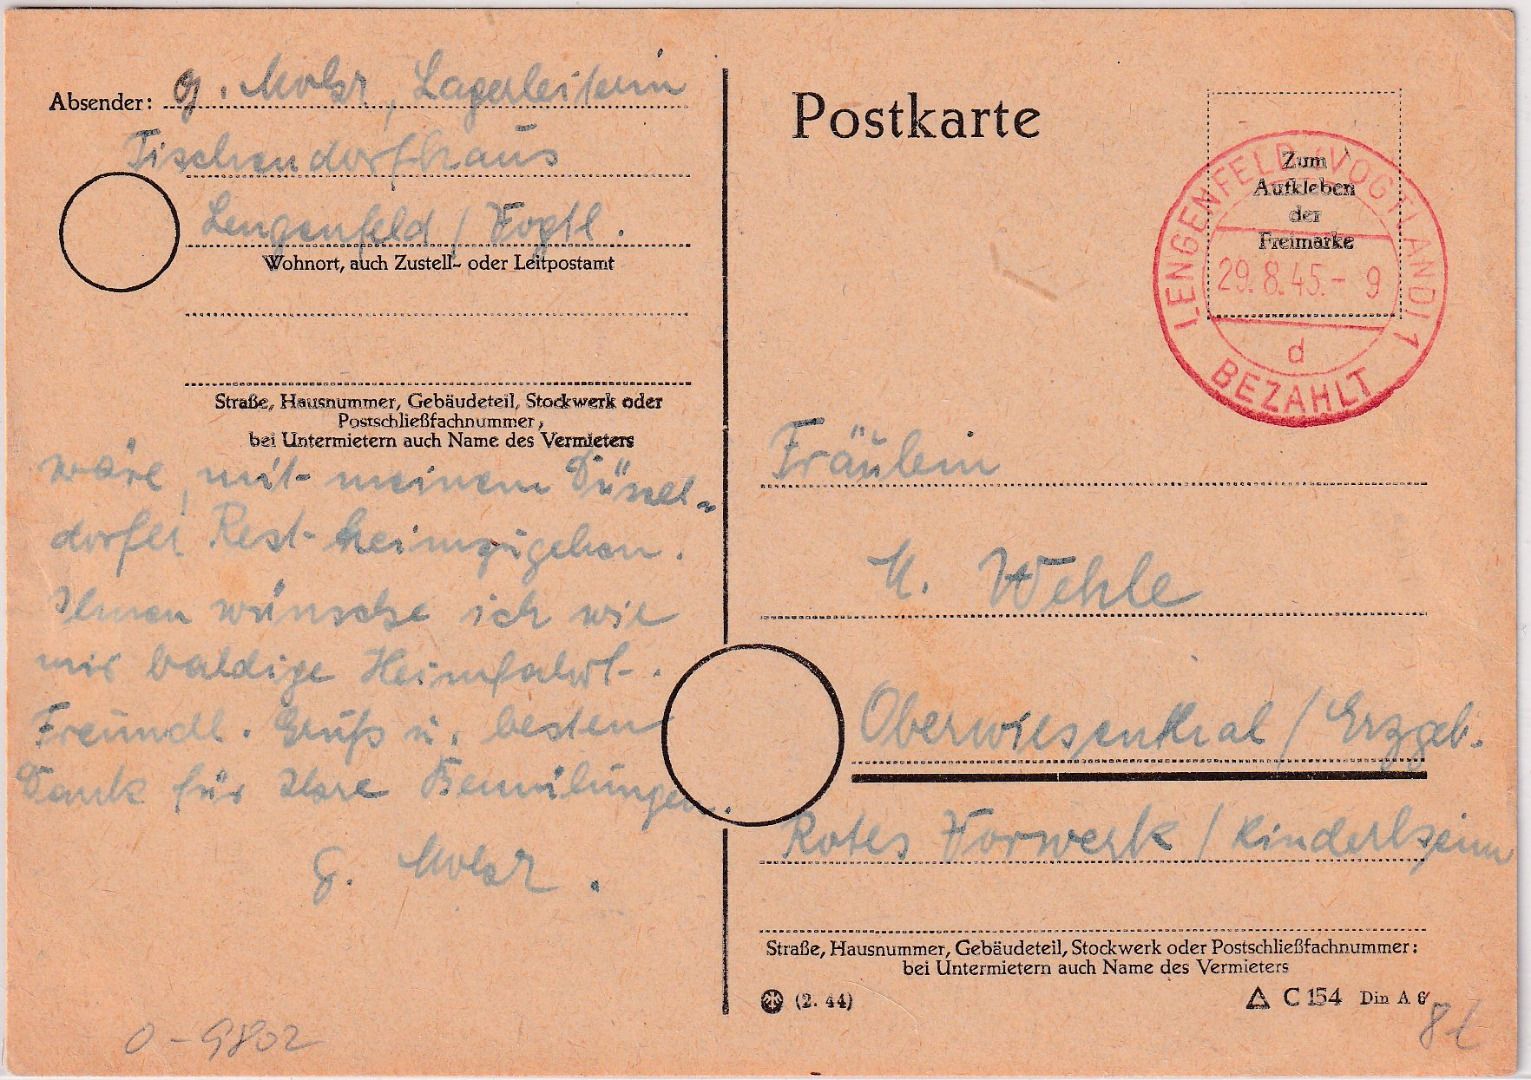 Absender: G. Mohr, Lagerleiterin
Tischendorfhaus
Lengenfeld / Vogtl.
Wohnort, auch Zustell- oder Leitpostamt
Straße, Hausnummer, Gebäudeteil, Stockwerk oder
Postschließfachnummer,
bei Untermietern auch Name des Vermieters
wäre, mit meinem Düssel-
dorfer Rest heimzugehen.
Ihnen wünsche ich wie
mir baldige Heimfahrt.
Freundl. Gruß u. besten
Dank für Ihre Bemühungen.
G. Mohr.
0-9802
Postkarte
Zum
Aufkleben
der
Freimarke
LENGENFELD (VOGTLAND) 1
29.8.45.- 9
d
BEZAHLT
Fräulein
M. Wehle
Oberwiesenthal / Erzgeb.
Rotes Vorwerk / Kinderheim
Straße, Hausnummer, Gebäudeteil, Stockwerk oder Postschließfachnummer:
bei Untermietern auch Name des Vermieters
(2. 44)
C 154 Din A 6